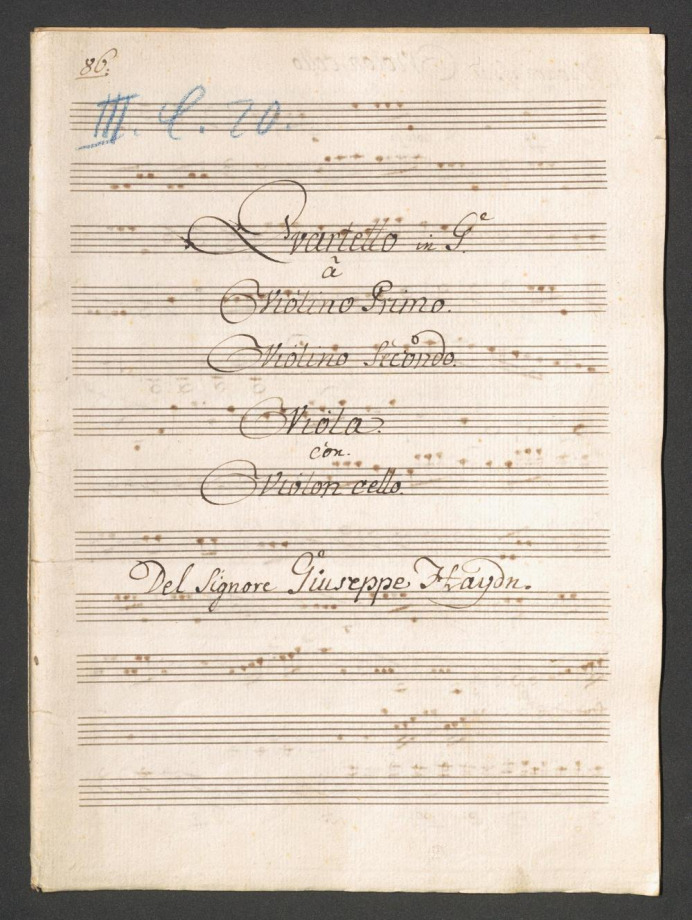 86.
III. C. 20.
Quartetto in Ge
à
Violino Primo.
Violino Secondo.
Viola.
con.
Violoncello.
Del Signore Giuseppe Haÿdn.